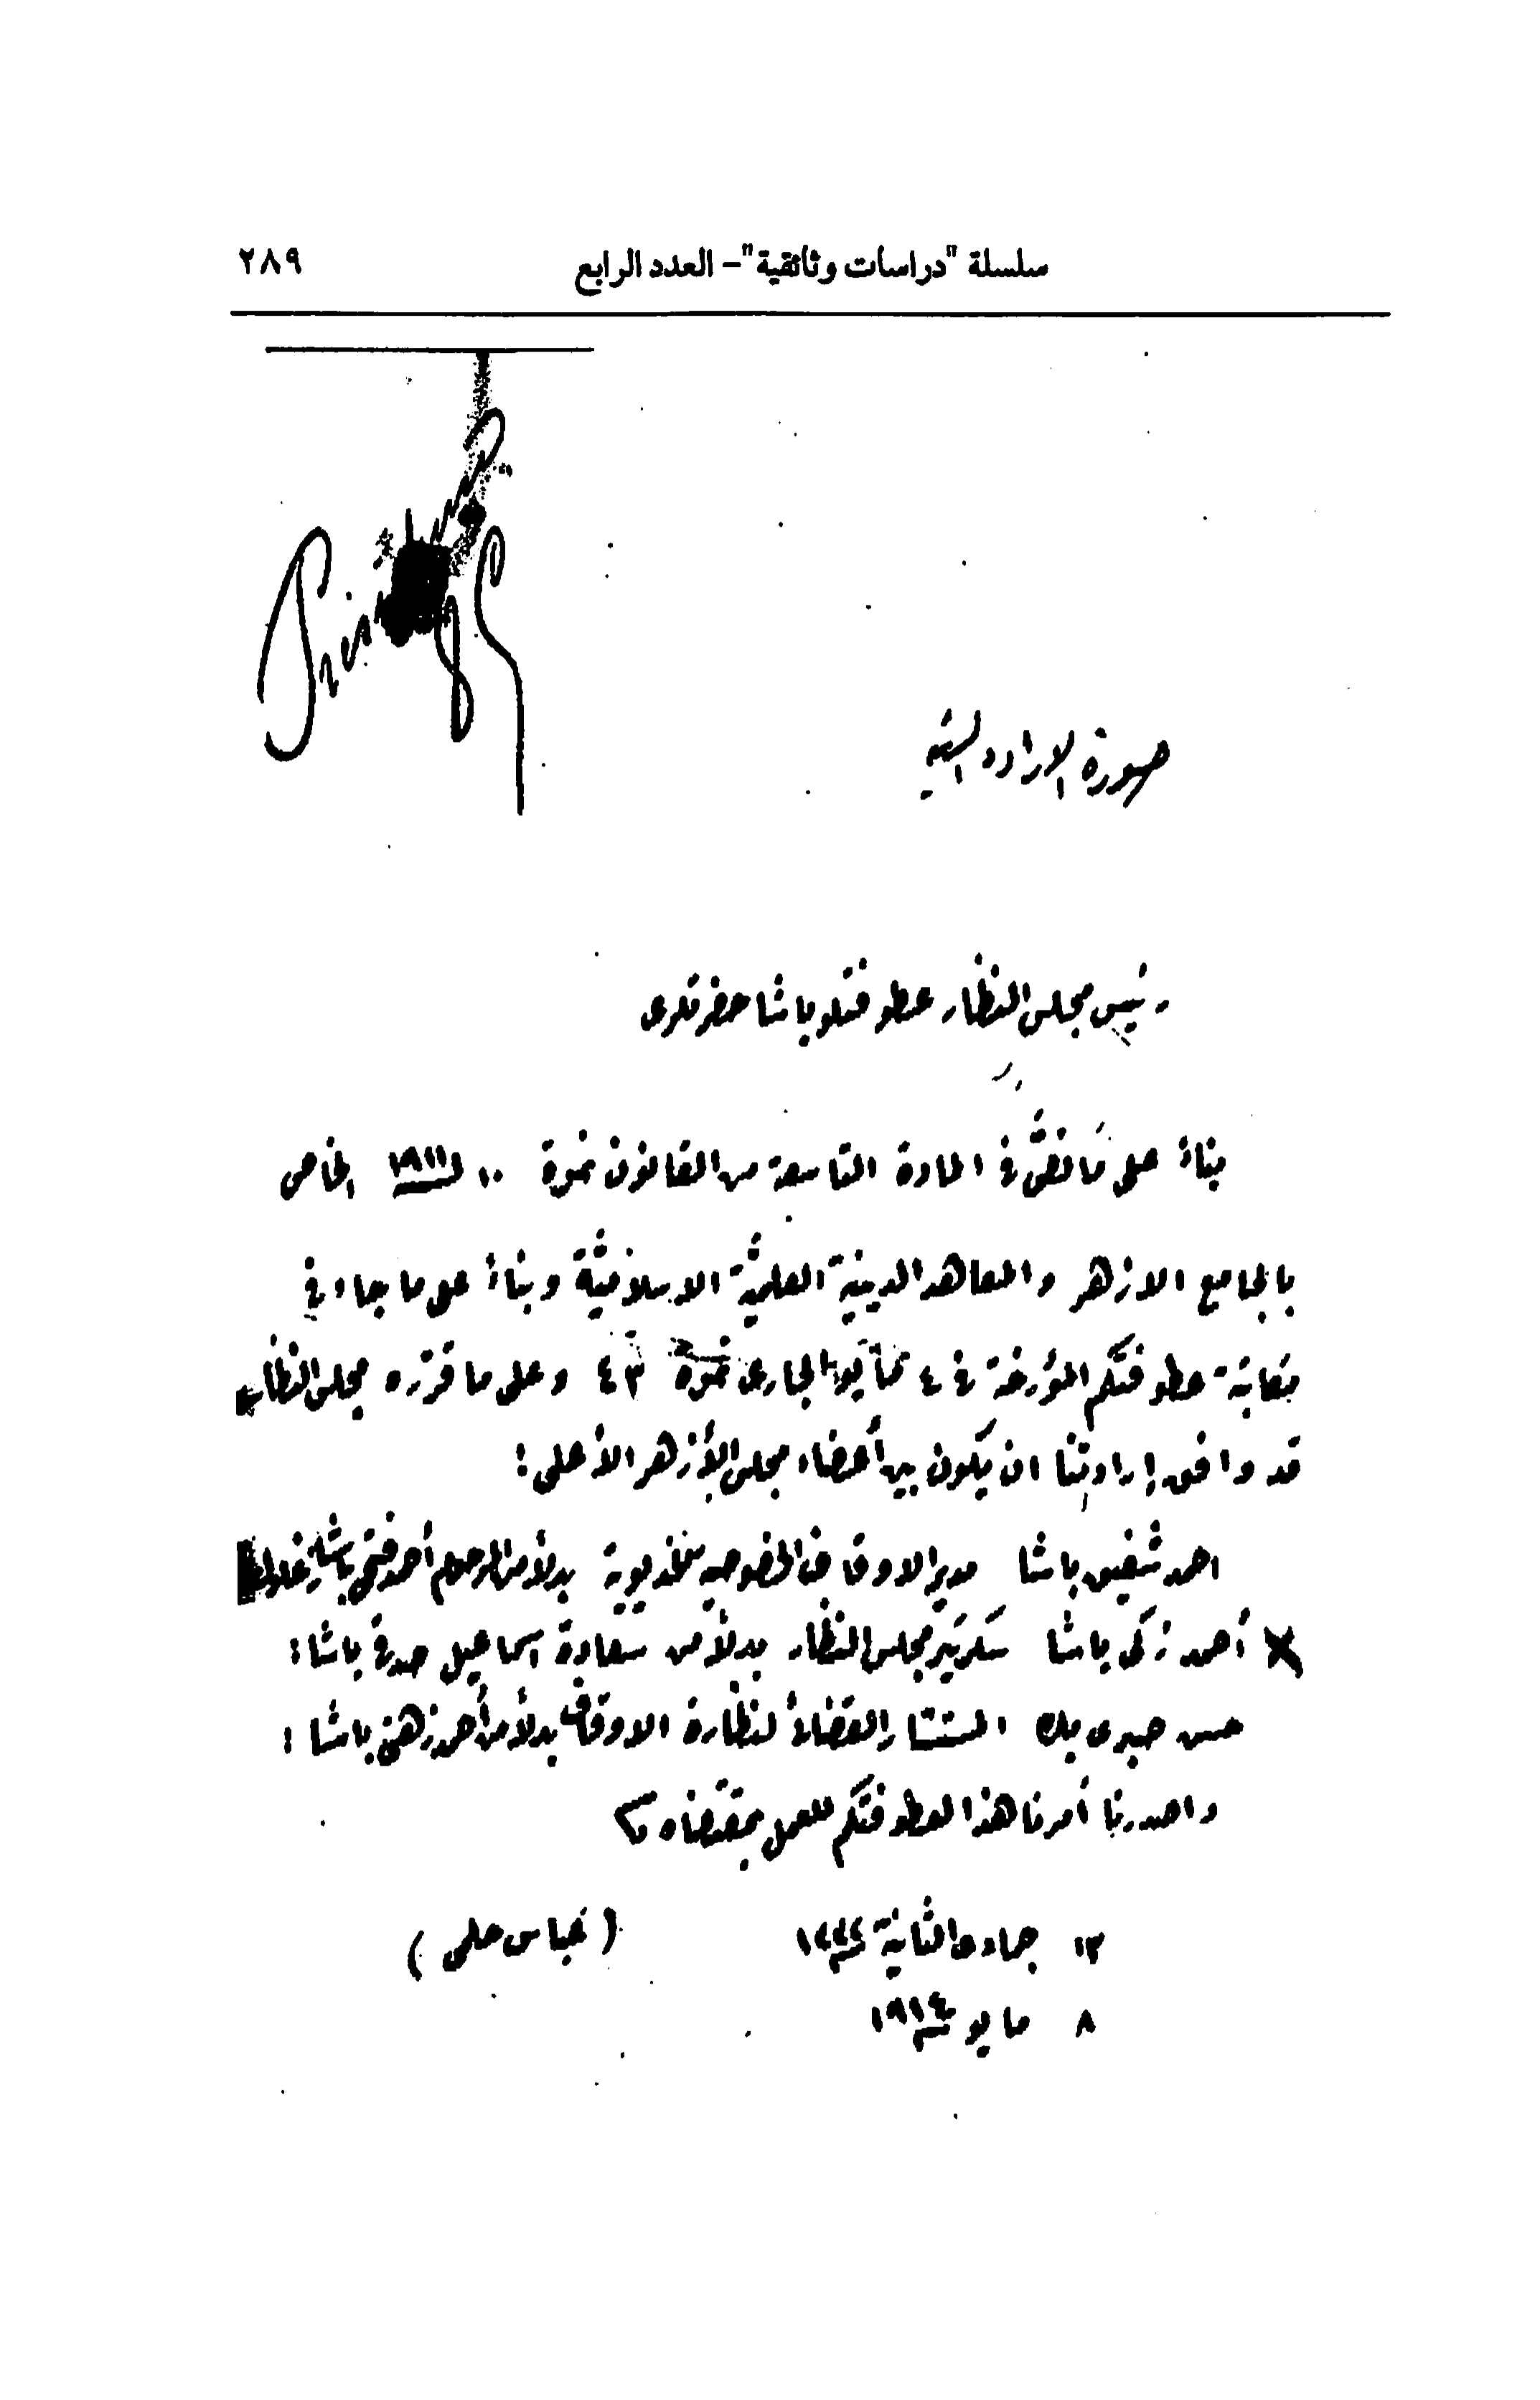 سلسلة "دراسات وثائقية"– العدد الرابع ٢٨٩
صورة الارادة السنية
رئيس مجلس النظار عطوفتلو باشا حضرتلرى
بناءً على ما نُصَّ فى المادة التاسعة من القانون نمرة ١٠ لسنة ١٩١١ الخاص
بالجامع الازهر والمعاهد الدينية العلمية الاسلامية وبناءً على ما جاء فى
كتابة عطوفتكم المؤرخة فى ٤ مايو الجارى نمرة ٤٣ وعلى ما قرره مجلس النظار
قد وافق إرادتنا ان يكون بين أعضاء مجلس الأزهر الأعلى :
احمد شفيق باشا مدير الاوقاف الخصوصية الخديوية بدلاً من المرحوم أحمد فتحى باشا زغلول
أحمد زكى باشا سكرتير مجلس النظار بدلاً من سعادة اسماعيل صدقى باشا :
حسن صبرى بك المستشار القضائى لنظارة الاوقاف بدلاً من أحمد زهنى باشا :
واصدرنا أمرنا هذا لعطوفتكم للعمل بمقتضاه
١٣ جمادى الثانية (عباس حلمى)
٨ مايو ١٩١٤